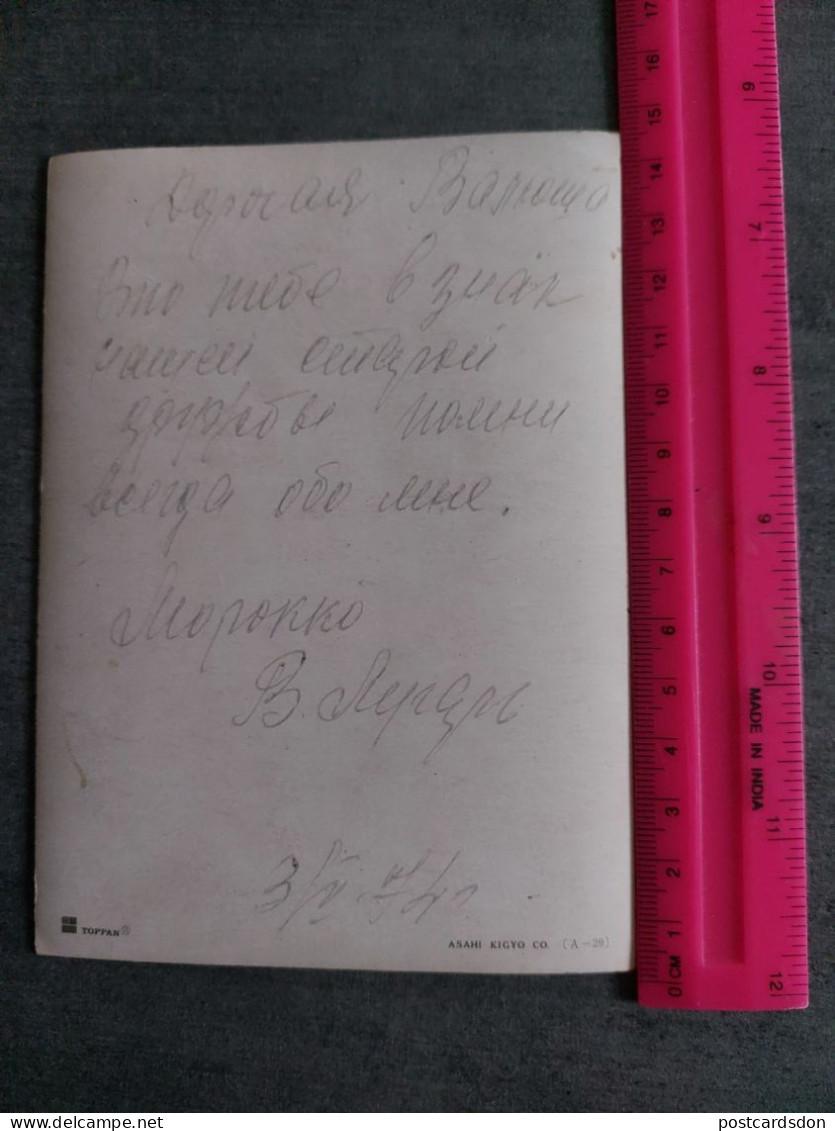 Дорогая Валюша
Это тебе в знак
нашей старой
дружбы помни
всегда обо мне.
Морокко
В.
3/V 74г
TOPPAN®
ASAHI KIGYO CO. (A-29)
0 CM 1 2 3 4 5 6 7 8 9 10 11 12 13 14 15 16 17
MADE IN INDIA
12 11 10 9 8 7 6
postcardsdon